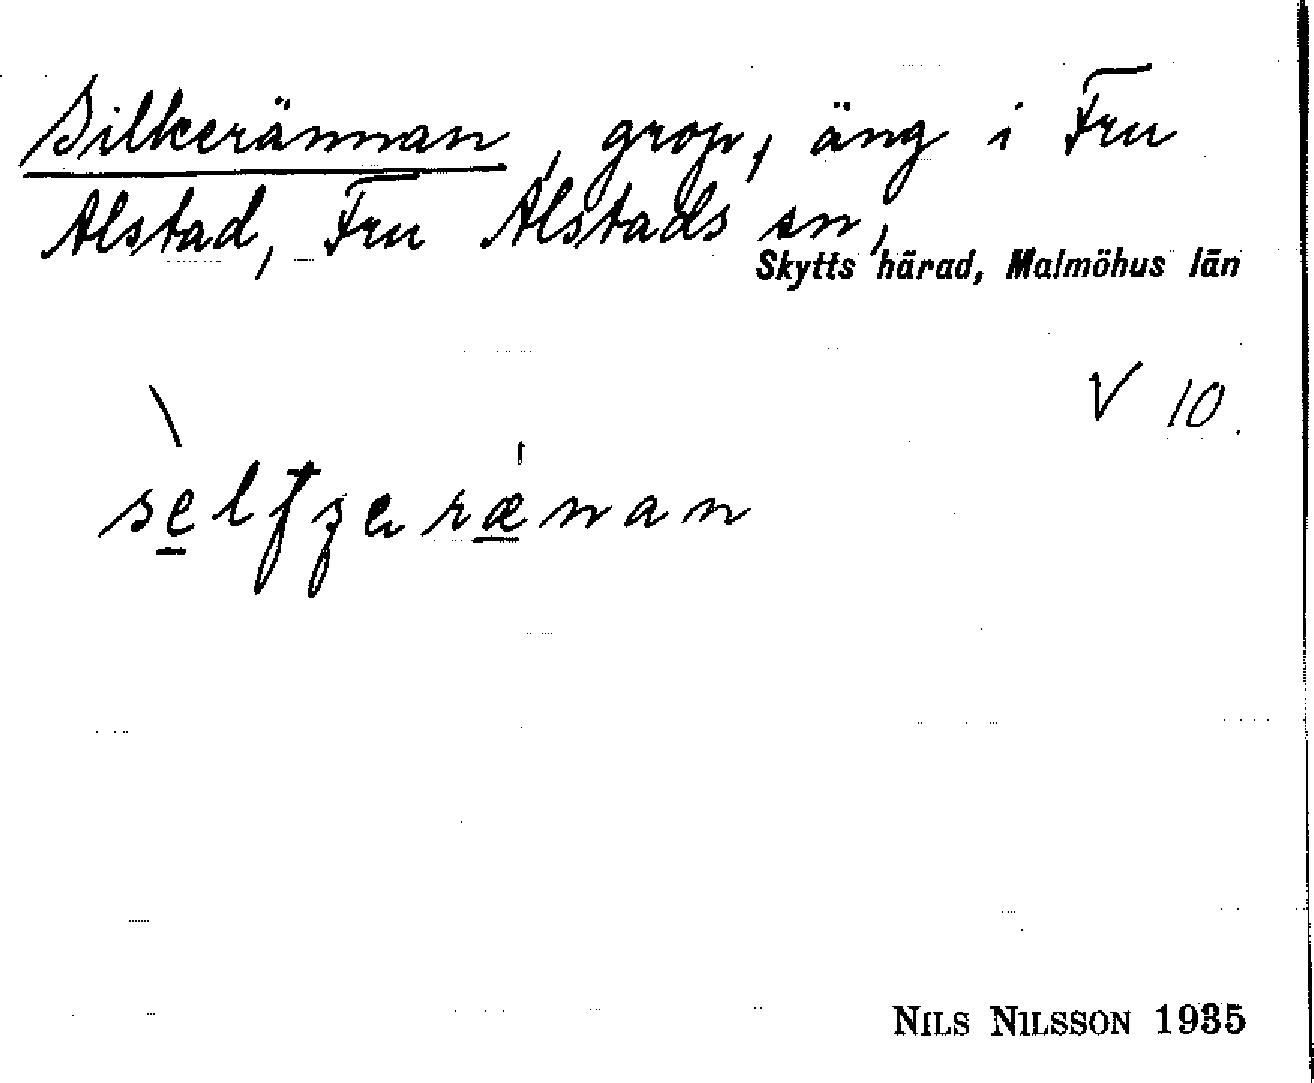 Silkerännan, grop, äng i Fru
Alstad, Fru Alstads sn,
Skytts härad, Malmöhus län
V 10.
NILS NILSSON 1935